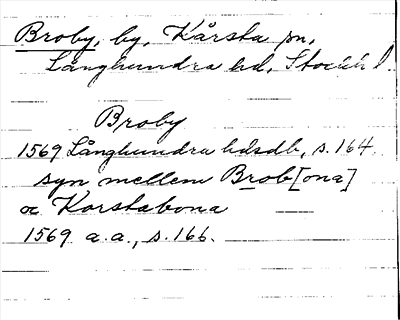 Broby, by, Kårsta sn,
Långhundra hd, Stockh l.
Broby
1569 Långhundra hdsdb, s. 164.
syn mellem Brob[ona]
oc Korstabona
1569 a.a., s. 166.